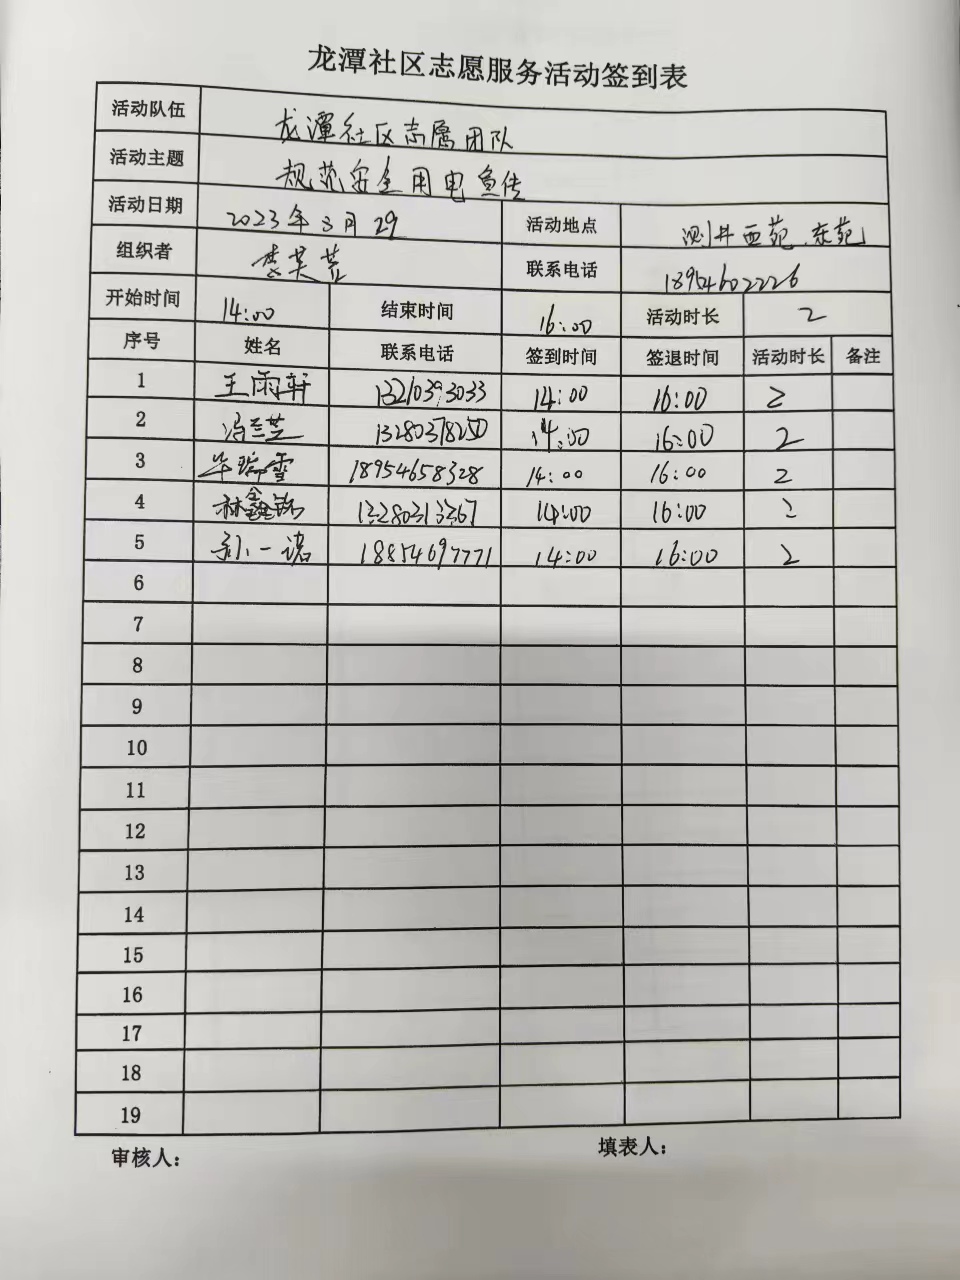 龙潭社区志愿服务活动签到表
活动队伍 龙潭社区志愿团队
活动主题 规范安全用电宣传
活动日期 2023年3月29 活动地点 测井西苑、东苑
组织者 联系电话 18954602226
开始时间 14:00 结束时间 16:00 活动时长 2
序号 姓名 联系电话 签到时间 签退时间 活动时长 备注
1 王雨轩 13210393033 14:00 16:00 2
2 冯兰芝 13280378250 14:00 16:00 2
3 毕瑞雪 18954658328 14:00 16:00 2
4 林鑫铭 13280313367 14:00 16:00 2
5 孙一诺 18854697771 14:00 16:00 2
6
7
8
9
10
11
12
13
14
15
16
17
18
19
审核人： 填表人：